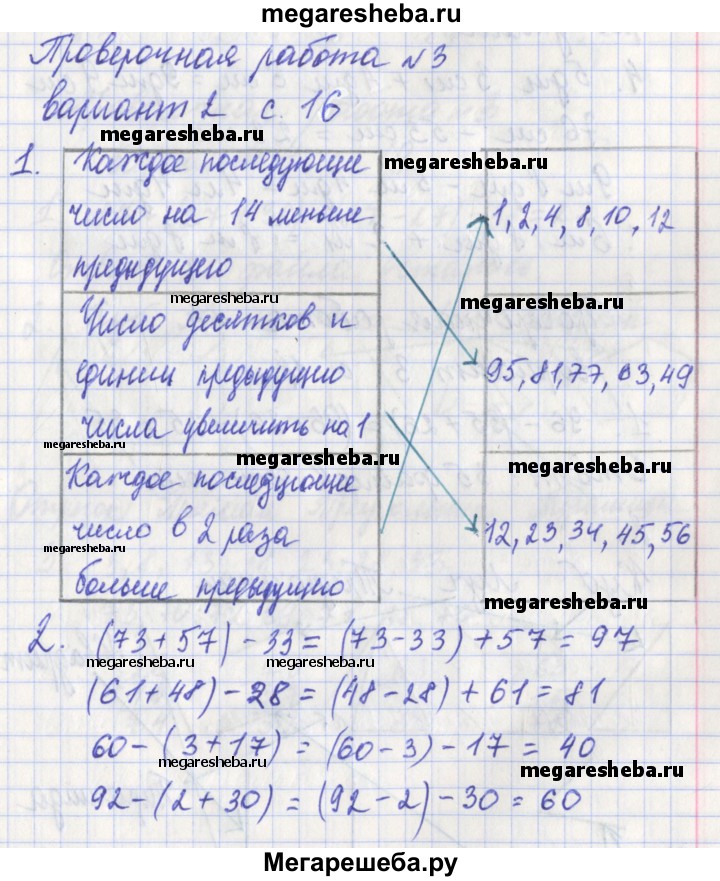 megaresheba.ru
Проверочная работа №3
вариант 2 с. 16
megaresheba.ru
megaresheba.ru
1. Каждое последующие
число на 14 меньше
предыдущего
1, 2, 4, 8, 10, 12
megaresheba.ru
megaresheba.ru
Число десятков и
единиц предыдущио
числа увеличить на 1
95, 81, 77, 63, 49
megaresheba.ru
megaresheba.ru
megaresheba.ru
Каждое последующие
число в 2 раза
больше предыдущио
12, 23, 34, 45, 56
megaresheba.ru
megaresheba.ru
megaresheba.ru
2. (73+57)-33=(73-33)+57=97
megaresheba.ru
megaresheba.ru
(61+48)-28=(48-28)+61=81
60-(3+17)=(60-3)-17=40
megaresheba.ru
megaresheba.ru
92-(2+30)=(92-2)-30=60
megaresheba.ru
Мегарешеба.ру